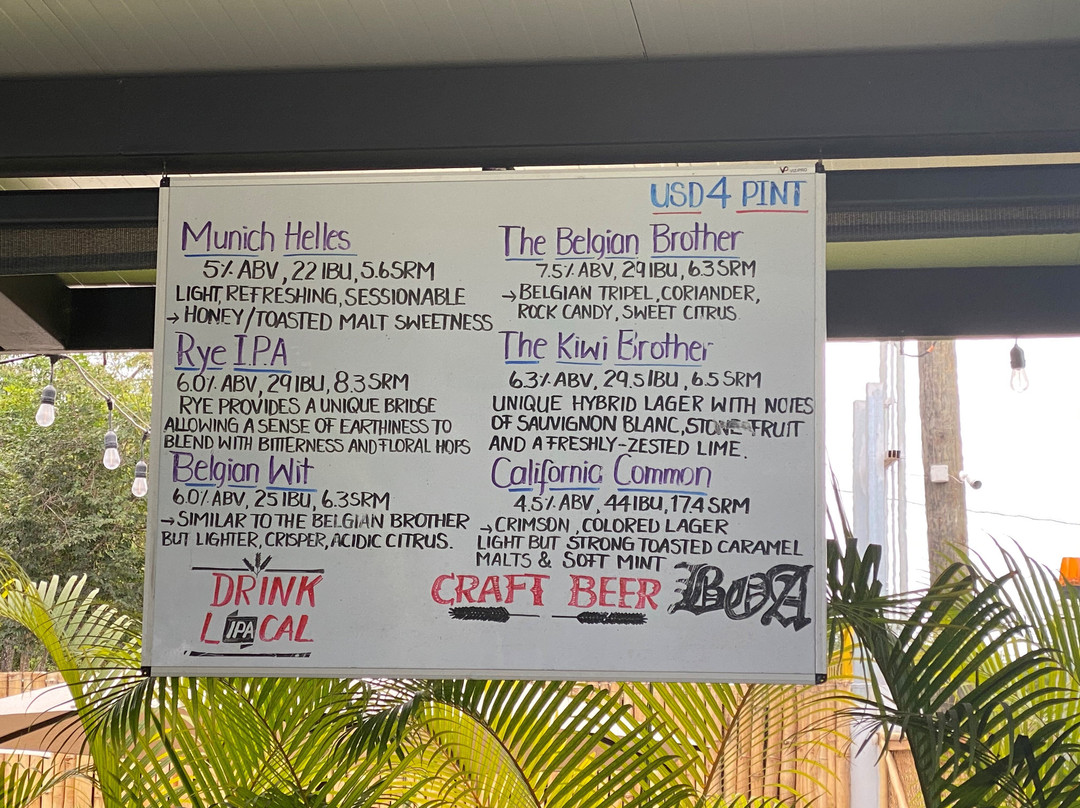 USD4 PINT
Munich Helles
5% ABV, 22 IBU, 5.6 SRM
LIGHT, REFRESHING, SESSIONABLE
→ HONEY/TOASTED MALT SWEETNESS
Rye IPA
6.0% ABV, 29 IBU, 8.3 SRM
RYE PROVIDES A UNIQUE BRIDGE
ALLOWING A SENSE OF EARTHINESS TO
BLEND WITH BITTERNESS AND FLORAL HOPS
Belgian Wit
6.0% ABV, 25 IBU, 6.3 SRM
→ SIMILAR TO THE BELGIAN BROTHER
BUT LIGHTER, CRISPER, ACIDIC CITRUS.
The Belgian Brother
7.5% ABV, 29 IBU, 6.3 SRM
→ BELGIAN TRIPEL, CORIANDER,
ROCK CANDY, SWEET CITRUS
The Kiwi Brother
6.3% ABV, 29.5 IBU, 6.5 SRM
UNIQUE HYBRID LAGER WITH NOTES
OF SAUVIGNON BLANC, STONE FRUIT
AND A FRESHLY-ZESTED LIME.
California Common
4.5% ABV, 44 IBU, 17.4 SRM
→ CRIMSON, COLORED LAGER
LIGHT BUT STRONG TOASTED CARAMEL
MALTS & SOFT MINT
DRINK
LIPACAL
CRAFT BEER
BOA